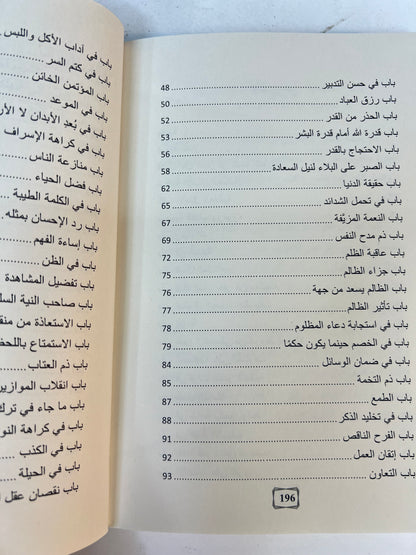 باب في حسن التدبير 48
باب رزق العباد 50
باب الحذر من القدر 52
باب قدرة الله أمام قدرة البشر 53
باب الاحتجاج بالقدر 56
باب الصبر على البلاء لنيل السعادة 58
باب حقيقة الدنيا 62
باب في تحمل الشدائد 65
باب النعمة المزيَّفة 67
باب ذم مدح النفس 69
باب عاقبة الظلم 72
باب جزاء الظالم 75
باب الظالم يسعد من جهة 76
باب تأثير الظالم 77
باب في استجابة دعاء المظلوم 78
باب في الخصم حينما يكون حكمًا 79
باب في ضمان الوسائل 84
باب ذم التخمة 85
باب الطمع 87
باب في تخليد الذكر 88
باب الفرح الناقص 91
باب إتقان العمل 92
باب التعاون 93
196
باب في آداب الأكل واللبس
باب في كتم السر
باب المؤتمن الخائن
باب في الموعد
باب في بُعدِ الأبدان لا
باب في كراهة الإسراف
باب منازعة الناس
باب فضل الحياء
باب في الكلمة الطيبة
باب رد الإحسان بمثله
باب إساءة الفهم
باب في الظن
باب تفضيل المشاهدة
باب صاحب النية
باب الاستعاذة من
باب الاستمتاع
باب ذم العتاب
باب انقلاب الموازين
باب ما جاء في ترك
باب في كراهة
باب في الكذب
باب في الحيلة
باب نقصان عقل